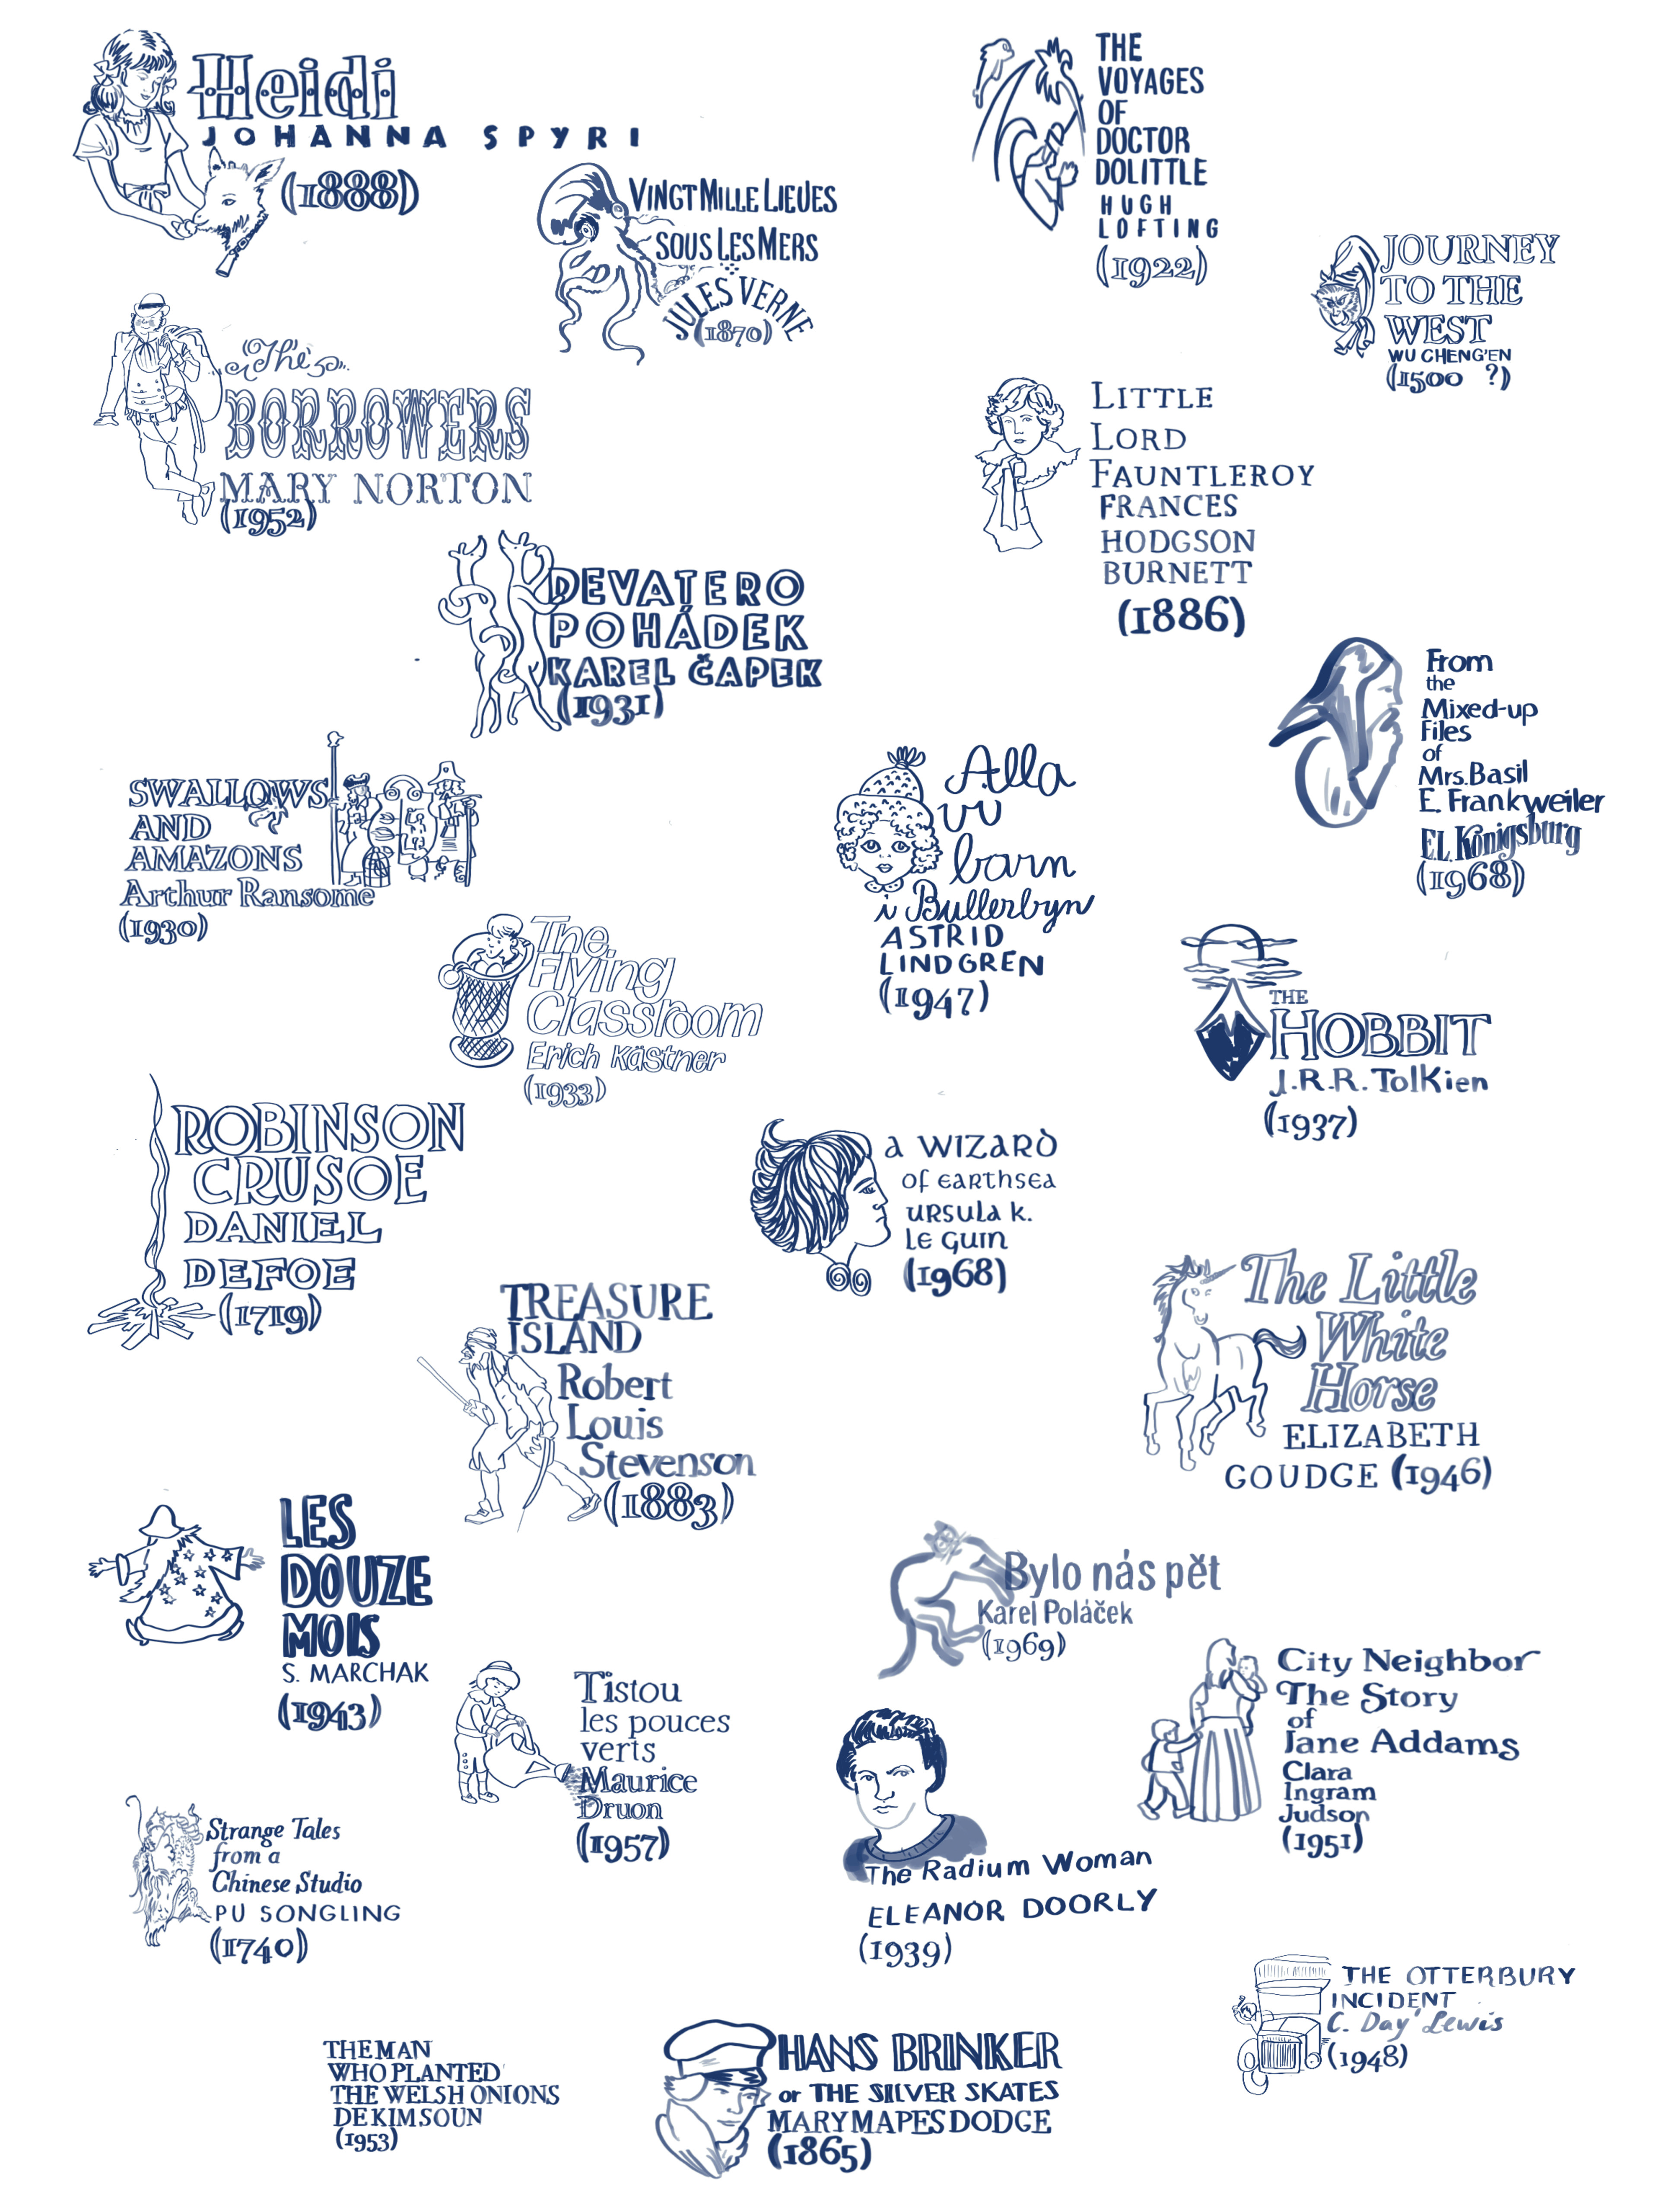 Heidi
JOHANNA SPYRI
(1888)
VINGT MILLE LIEUES
SOUS LES MERS
JULES VERNE
(1870)
THE
VOYAGES
OF
DOCTOR
DOLITTLE
HUGH
LOFTING
(1922)
JOURNEY
TO THE
WEST
WU CHENG'EN
(1500 ?)
The
BORROWERS
MARY NORTON
(1952)
LITTLE
LORD
FAUNTLEROY
FRANCES
HODGSON
BURNETT
(1886)
DEVATERO
POHÁDEK
KAREL ČAPEK
(1931)
From
the
Mixed-up
Files
of
Mrs. Basil
E. Frankweiler
E.L. Königsburg
(1968)
SWALLOWS
AND
AMAZONS
Arthur Ransome
(1930)
Alla
vi
barn
i Bullerbyn
ASTRID
LINDGREN
(1947)
The
Flying
Classroom
Erich Kästner
(1933)
THE
HOBBIT
J.R.R. Tolkien
(1937)
ROBINSON
CRUSOE
DANIEL
DEFOE
(1719)
a wizard
of earthsea
ursula k.
le guin
(1968)
TREASURE
ISLAND
Robert
Louis
Stevenson
(1883)
The Little
White
Horse
ELIZABETH
GOUDGE (1946)
LES
DOUZE
MOIS
S. MARCHAK
(1943)
Bylo nás pět
Karel Poláček
(1969)
Tistou
les pouces
verts
Maurice
Druon
(1957)
City Neighbor
The Story
of
Jane Addams
Clara
Ingram
Judson
(1951)
Strange Tales
from a
Chinese Studio
PU SONGLING
(1740)
The Radium Woman
ELEANOR DOORLY
(1939)
THE OTTERBURY
INCIDENT
C. Day Lewis
(1948)
THE MAN
WHO PLANTED
THE WELSH ONIONS
DE KIM SOUN
(1953)
HANS BRINKER
or THE SILVER SKATES
MARY MAPES DODGE
(1865)